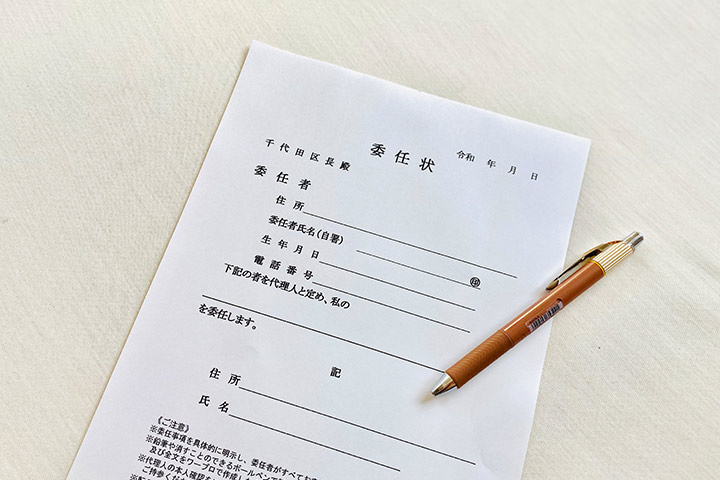 委任状
令和 年 月 日
千代田区長殿
委任者
住所
委任者氏名（自署）
㊞
生年月日
電話番号
下記の者を代理人と定め、私の
を委任します。
記
住所
氏名
《ご注意》
※委任事項を具体的に明示し、委任者がすべて
※鉛筆や消すことのできるボールペンで
及び全文をワープロで作成し
※代理人の本人確認を
ご持参くだ